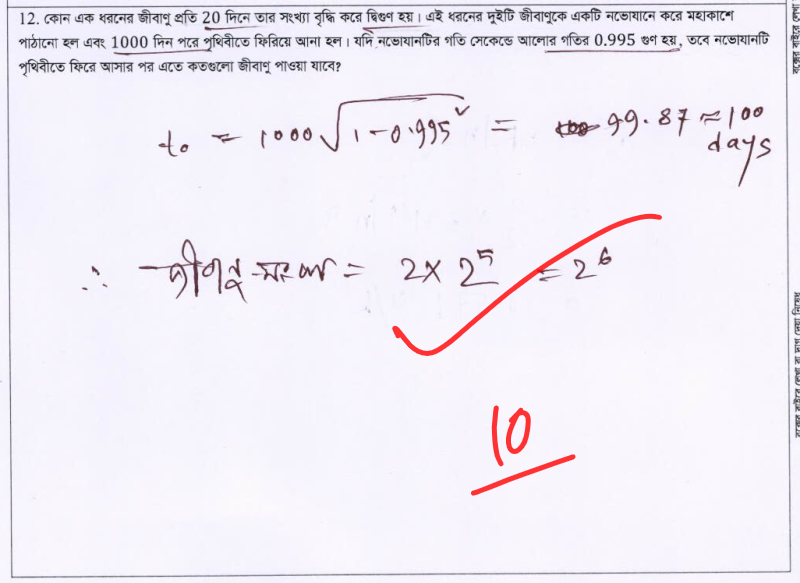 12. কোন এক ধরনের জীবাণু প্রতি 20 দিনে তার সংখ্যা বৃদ্ধি করে দ্বিগুণ হয়। এই ধরনের দুইটি জীবাণুকে একটি নভোযানে করে মহাকাশে
পাঠানো হল এবং 1000 দিন পরে পৃথিবীতে ফিরিয়ে আনা হল। যদি নভোযানটির গতি সেকেন্ডে আলোর গতির 0.995 গুণ হয়, তবে নভোযানটি
পৃথিবীতে ফিরে আসার পর এতে কতগুলো জীবাণু পাওয়া যাবে?
t₀ = 1000 √(1-0.995²) = 99.87 ≈ 100
days
∴ জীবাণু সংখ্যা = 2 × 2⁵ = 2⁶
10